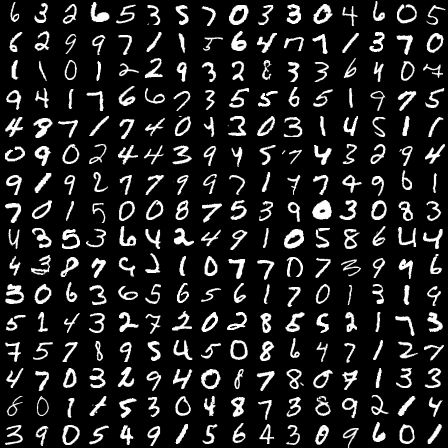 6 3 2 6 5 3 5 7 0 3 3 0 4 6 0 5
6 2 9 9 7 1 1 5 6 4 7 7 1 3 7 0
1 1 0 1 2 2 9 3 2 8 3 3 6 4 0 7
9 4 1 7 6 6 7 3 5 5 6 5 1 9 7 5
4 8 7 1 7 4 0 4 3 0 3 1 4 5 1 1
0 9 0 2 4 4 3 9 4 5 7 4 3 2 9 4
9 1 9 2 7 7 9 9 7 1 7 7 4 9 6 1
7 0 1 5 0 0 8 7 5 3 9 0 3 0 8 3
4 3 5 3 6 4 2 4 9 1 0 5 8 6 4 4
4 3 8 7 9 2 1 0 7 7 0 7 3 9 9 6
3 0 6 3 6 5 6 5 6 1 7 0 1 3 1 9
5 1 4 3 2 7 2 0 2 8 5 5 2 1 7 3
7 5 7 8 9 5 4 5 0 8 6 4 7 1 2 7
4 7 0 3 2 9 4 0 8 7 8 0 7 1 3 3
6 0 1 1 5 3 0 4 8 7 3 8 9 2 1 4
3 9 0 5 4 9 1 5 6 4 3 0 9 6 0 1